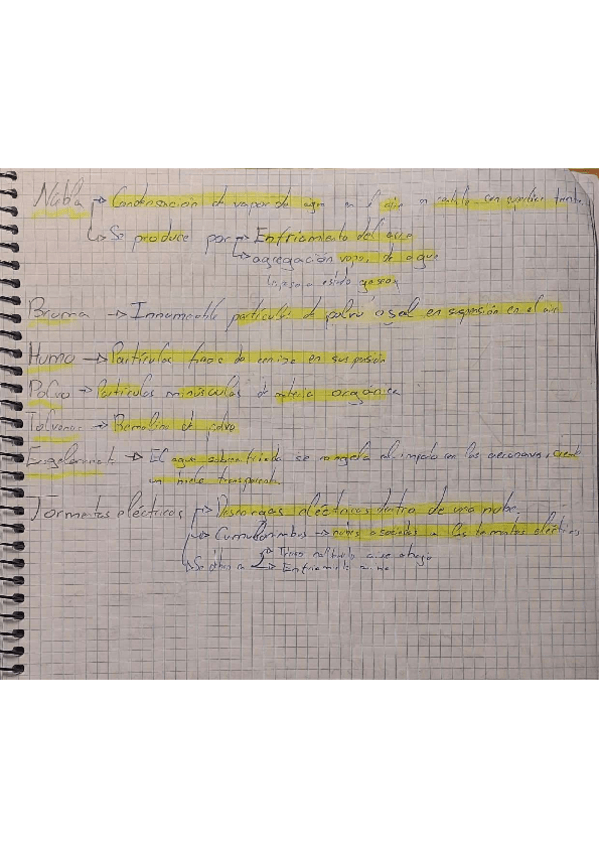 Niebla → Condensación de vapor de agua en el aire en contacto con superficie
→ Se produce por → Enfriamiento del aire
→ agregación vapor de agua
Bruma → Innumerable partículas de polvo o sal en suspensión en el aire
Humo → Partículas finas de ceniza en suspensión
Polvo → Partículas minúsculas de materia orgánica
→ Remolino de polvo
Engelamiento → El agua se congela al impacto con las aeronaves, creando
un hielo transparente.
Tormentas eléctricas → Descargas eléctricas dentro de una nube.
→ Cumulonimbos → nubes asociadas a las tormentas eléctricas
→ Enfriamiento